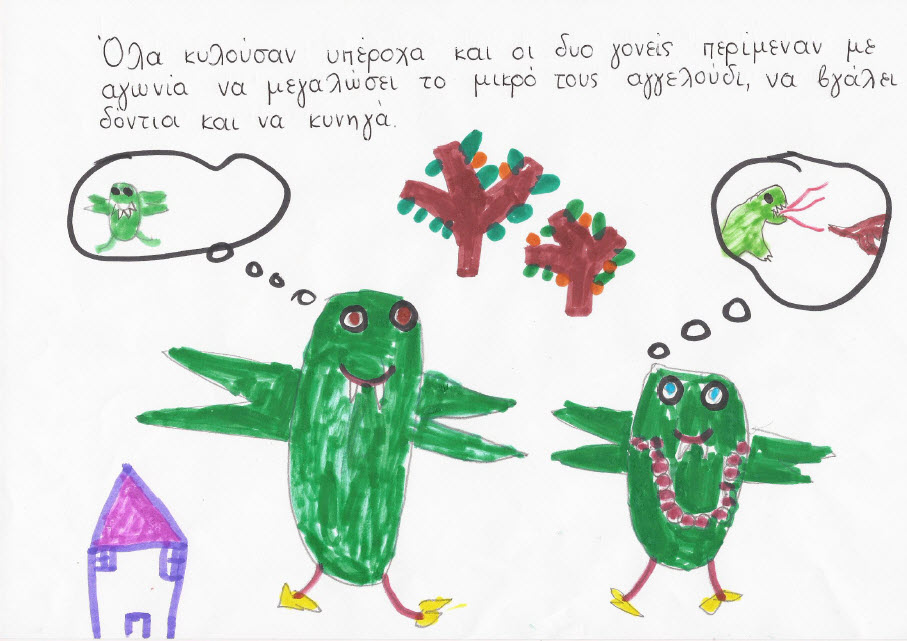 Όλα κυλούσαν υπέροχα και οι δυο γονείς περίμεναν με
αγωνία να μεγαλώσει το μικρό τους αγγελούδι, να βγάλει
δόντια και να κυνηγά.